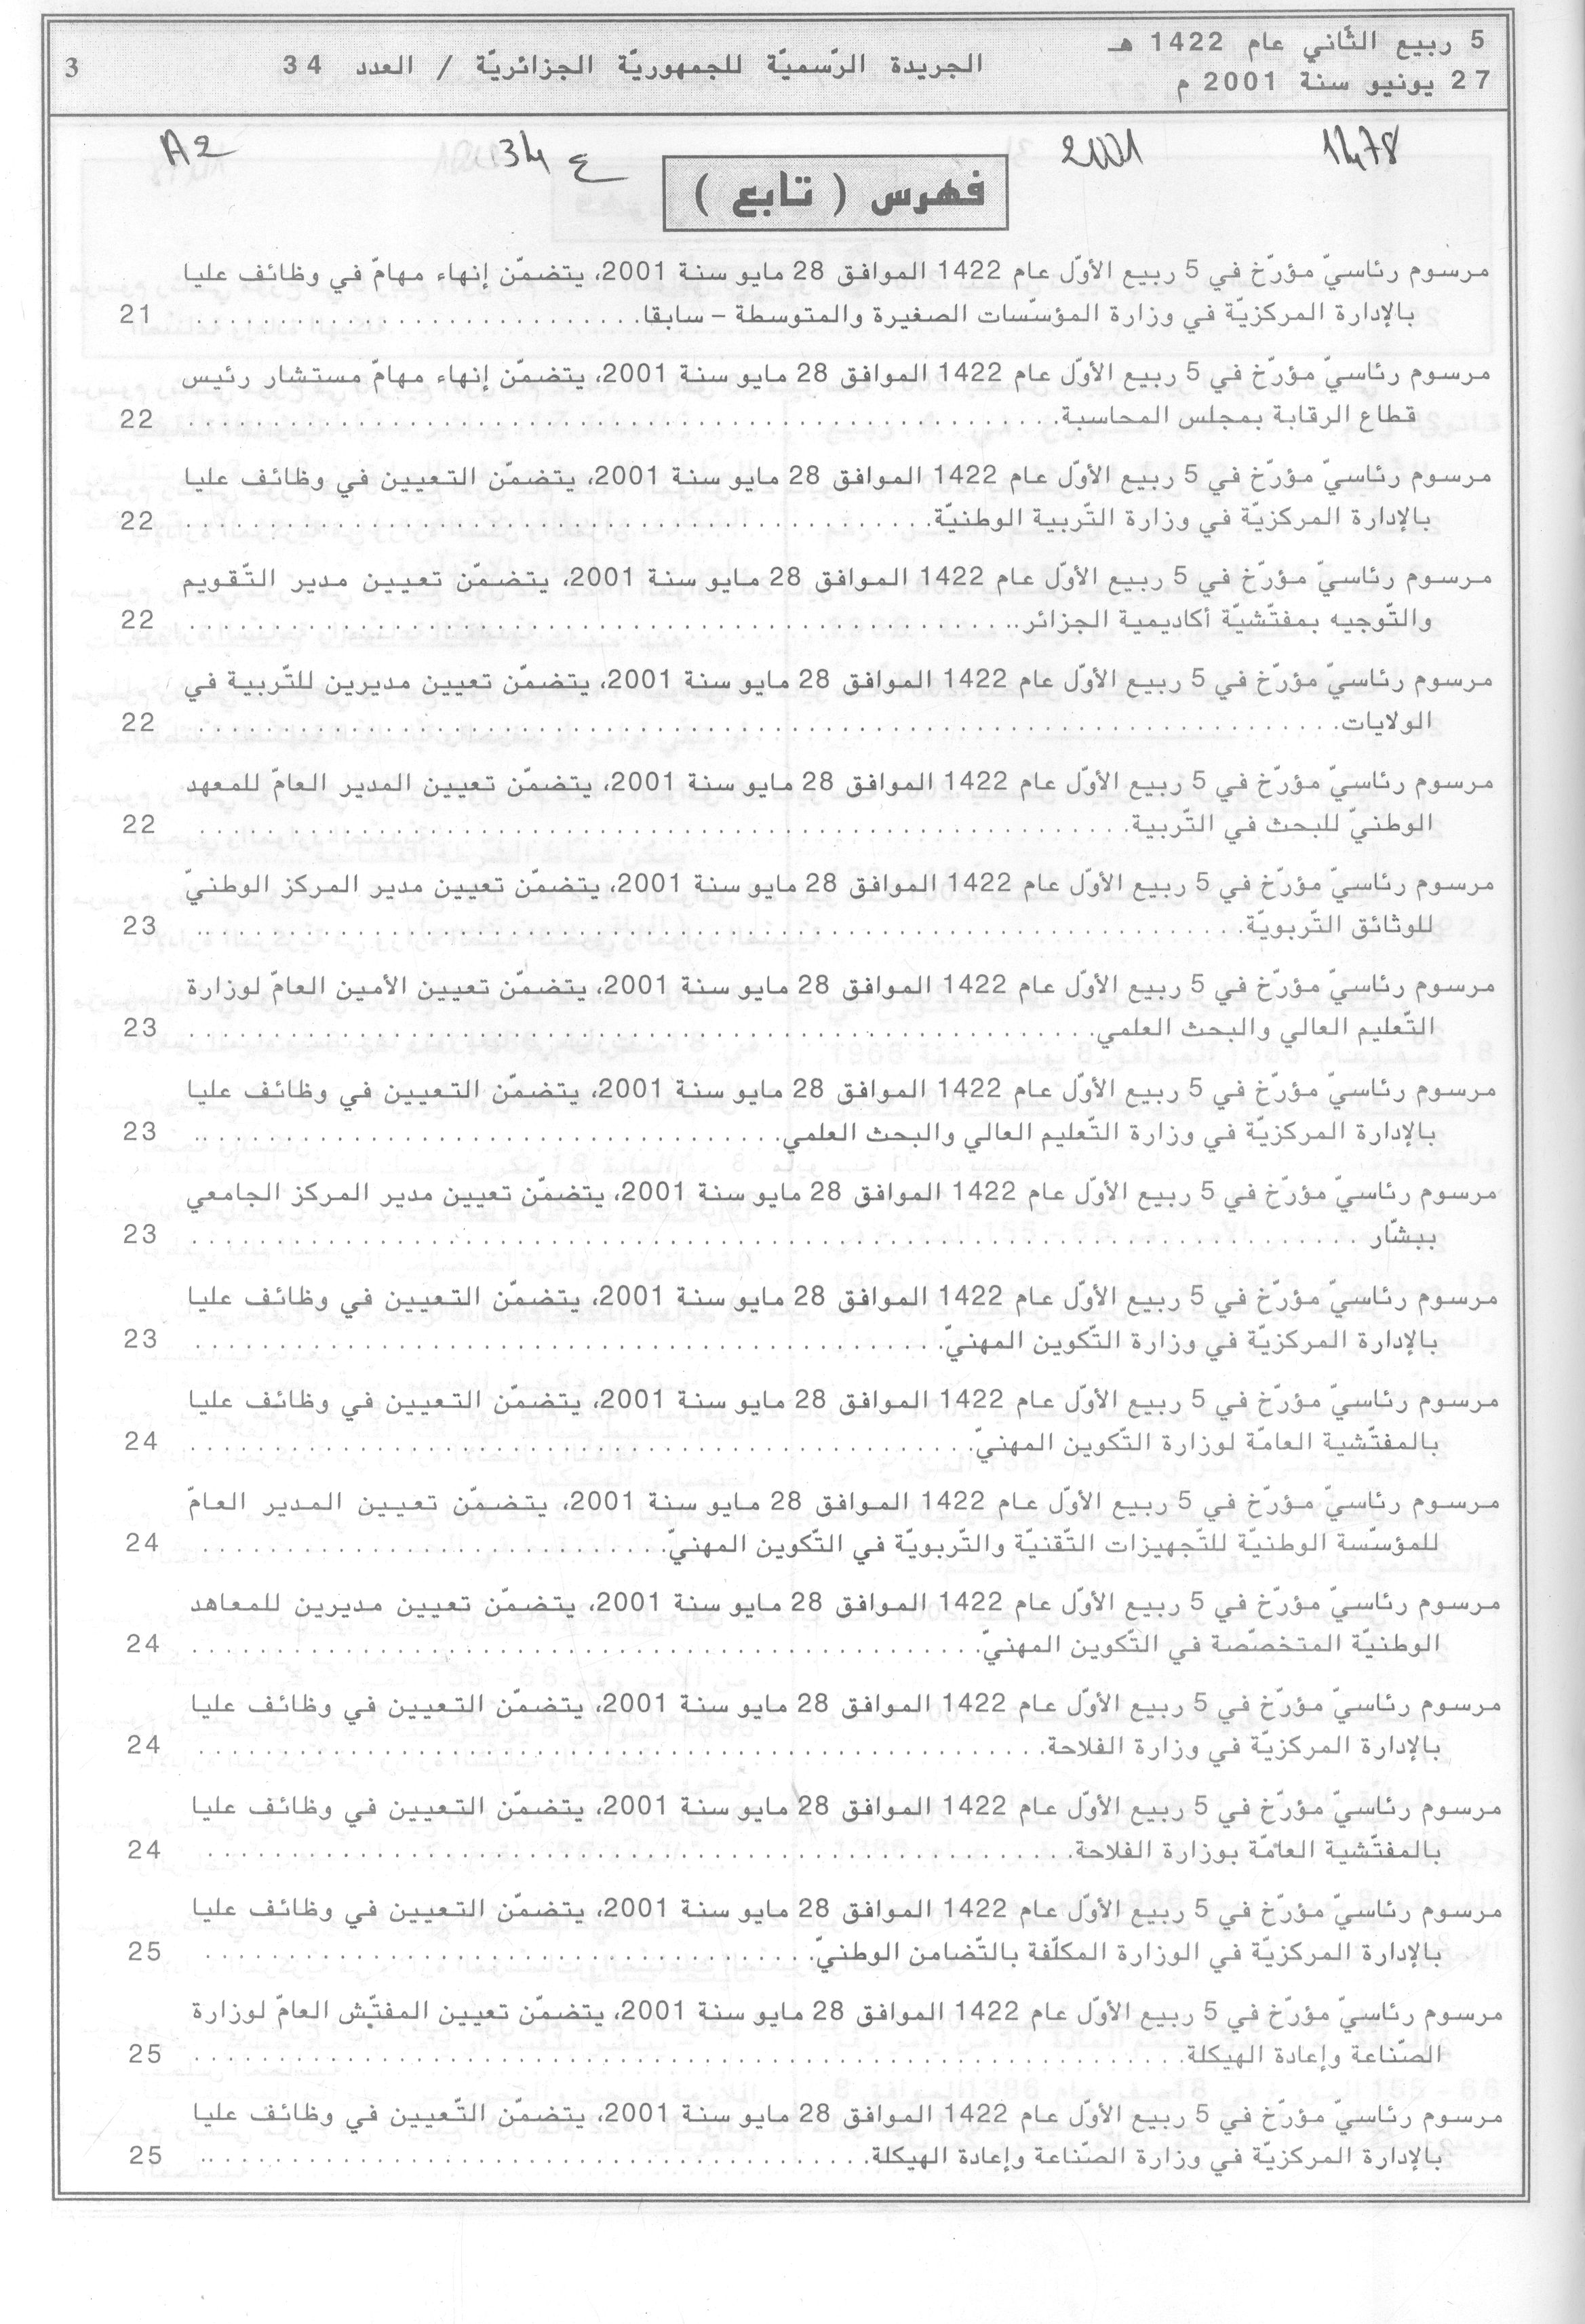 5 ربيع الثّاني عام 1422 هـ
27 يونيو سنة 2001 م
الجريدة الرّسميّة للجمهوريّة الجزائريّة / العدد 34
3
1478
2001
34 ع
A2
فهرس ( تابع )
مرسوم رئاسيّ مؤرّخ في 5 ربيع الأوّل عام 1422 الموافق 28 مايو سنة 2001، يتضمّن إنهاء مهامّ في وظائف عليا
بالإدارة المركزيّة في وزارة المؤسّسات الصغيرة والمتوسطة – سابقا. . . . . . . . . . . . . . . . . . . . 21
مرسوم رئاسيّ مؤرّخ في 5 ربيع الأوّل عام 1422 الموافق 28 مايو سنة 2001، يتضمّن إنهاء مهامّ مستشار رئيس
قطاع الرقابة بمجلس المحاسبة. . . . . . . . . . . . . . . . . . . . 22
مرسوم رئاسيّ مؤرّخ في 5 ربيع الأوّل عام 1422 الموافق 28 مايو سنة 2001، يتضمّن التعيين في وظائف عليا
بالإدارة المركزيّة في وزارة التّربية الوطنيّة. . . . . . . . . . . . . . . . . . . . 22
مرسوم رئاسيّ مؤرّخ في 5 ربيع الأوّل عام 1422 الموافق 28 مايو سنة 2001، يتضمّن تعيين مدير التّقويم
والتّوجيه بمفتّشيّة أكاديمية الجزائر. . . . . . . . . . . . . . . . . . . . 22
مرسوم رئاسيّ مؤرّخ في 5 ربيع الأوّل عام 1422 الموافق 28 مايو سنة 2001، يتضمّن تعيين مديرين للتّربية في
الولايات. . . . . . . . . . . . . . . . . . . . 22
مرسوم رئاسيّ مؤرّخ في 5 ربيع الأوّل عام 1422 الموافق 28 مايو سنة 2001، يتضمّن تعيين المدير العامّ للمعهد
الوطنيّ للبحث في التّربية. . . . . . . . . . . . . . . . . . . . 22
مرسوم رئاسيّ مؤرّخ في 5 ربيع الأوّل عام 1422 الموافق 28 مايو سنة 2001، يتضمّن تعيين مدير المركز الوطنيّ
للوثائق التّربويّة. . . . . . . . . . . . . . . . . . . . 23
مرسوم رئاسيّ مؤرّخ في 5 ربيع الأوّل عام 1422 الموافق 28 مايو سنة 2001، يتضمّن تعيين الأمين العامّ لوزارة
التّعليم العالي والبحث العلمي. . . . . . . . . . . . . . . . . . . . 23
مرسوم رئاسيّ مؤرّخ في 5 ربيع الأوّل عام 1422 الموافق 28 مايو سنة 2001، يتضمّن التعيين في وظائف عليا
بالإدارة المركزيّة في وزارة التّعليم العالي والبحث العلمي. . . . . . . . . . . . . . . . . . . . 23
مرسوم رئاسيّ مؤرّخ في 5 ربيع الأوّل عام 1422 الموافق 28 مايو سنة 2001، يتضمّن تعيين مدير المركز الجامعي
ببشّار . . . . . . . . . . . . . . . . . . . . 23
مرسوم رئاسيّ مؤرّخ في 5 ربيع الأوّل عام 1422 الموافق 28 مايو سنة 2001، يتضمّن التعيين في وظائف عليا
بالإدارة المركزيّة في وزارة التّكوين المهنيّ. . . . . . . . . . . . . . . . . . . . 23
مرسوم رئاسيّ مؤرّخ في 5 ربيع الأوّل عام 1422 الموافق 28 مايو سنة 2001، يتضمّن التعيين في وظائف عليا
بالمفتّشية العامّة لوزارة التّكوين المهنيّ. . . . . . . . . . . . . . . . . . . . 24
مرسوم رئاسيّ مؤرّخ في 5 ربيع الأوّل عام 1422 الموافق 28 مايو سنة 2001، يتضمّن تعيين المدير العامّ
للمؤسّسة الوطنيّة للتّجهيزات التّقنيّة والتّربويّة في التّكوين المهنيّ. . . . . . . . . . . . . . . . . . . . 24
مرسوم رئاسيّ مؤرّخ في 5 ربيع الأوّل عام 1422 الموافق 28 مايو سنة 2001، يتضمّن تعيين مديرين للمعاهد
الوطنيّة المتخصّصة في التّكوين المهنيّ. . . . . . . . . . . . . . . . . . . . 24
مرسوم رئاسيّ مؤرّخ في 5 ربيع الأوّل عام 1422 الموافق 28 مايو سنة 2001، يتضمّن التعيين في وظائف عليا
بالإدارة المركزيّة في وزارة الفلاحة. . . . . . . . . . . . . . . . . . . . 24
مرسوم رئاسيّ مؤرّخ في 5 ربيع الأوّل عام 1422 الموافق 28 مايو سنة 2001، يتضمّن التعيين في وظائف عليا
بالمفتّشية العامّة بوزارة الفلاحة. . . . . . . . . . . . . . . . . . . . 24
مرسوم رئاسيّ مؤرّخ في 5 ربيع الأوّل عام 1422 الموافق 28 مايو سنة 2001، يتضمّن التعيين في وظائف عليا
بالإدارة المركزيّة في الوزارة المكلّفة بالتّضامن الوطنيّ. . . . . . . . . . . . . . . . . . . . 25
مرسوم رئاسيّ مؤرّخ في 5 ربيع الأوّل عام 1422 الموافق 28 مايو سنة 2001، يتضمّن تعيين المفتّش العامّ لوزارة
الصّناعة وإعادة الهيكلة. . . . . . . . . . . . . . . . . . . . 25
مرسوم رئاسيّ مؤرّخ في 5 ربيع الأوّل عام 1422 الموافق 28 مايو سنة 2001، يتضمّن التّعيين في وظائف عليا
بالإدارة المركزيّة في وزارة الصّناعة وإعادة الهيكلة. . . . . . . . . . . . . . . . . . . . 25